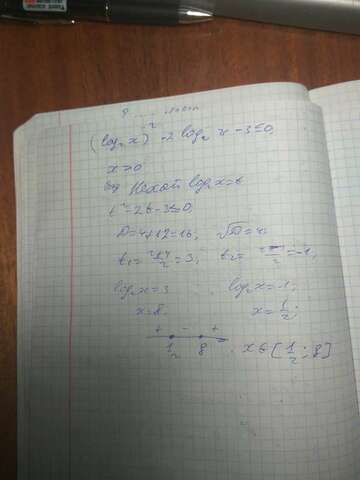 (log₂x)² - 2 log₂ x - 3 ≤ 0
x > 0
Нехай log₂x = t
t² - 2t - 3 ≤ 0,
D = 4 + 12 = 16, √D = 4
t₁ = (2+4)/2 = 3; t₂ = = -1,
log₂x = 3 log₂x = -1,
x = 8. x = 1/2;
+ - +
1/2 8 x ∈ [1/2; 8]